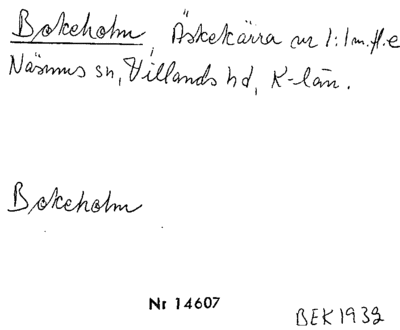 Bokeholm, Äskekärra nr 1:1 m.fl.e
Näsums sn, Villands hd, K-län.
Bokeholm
Nr 14607
BEK 1932